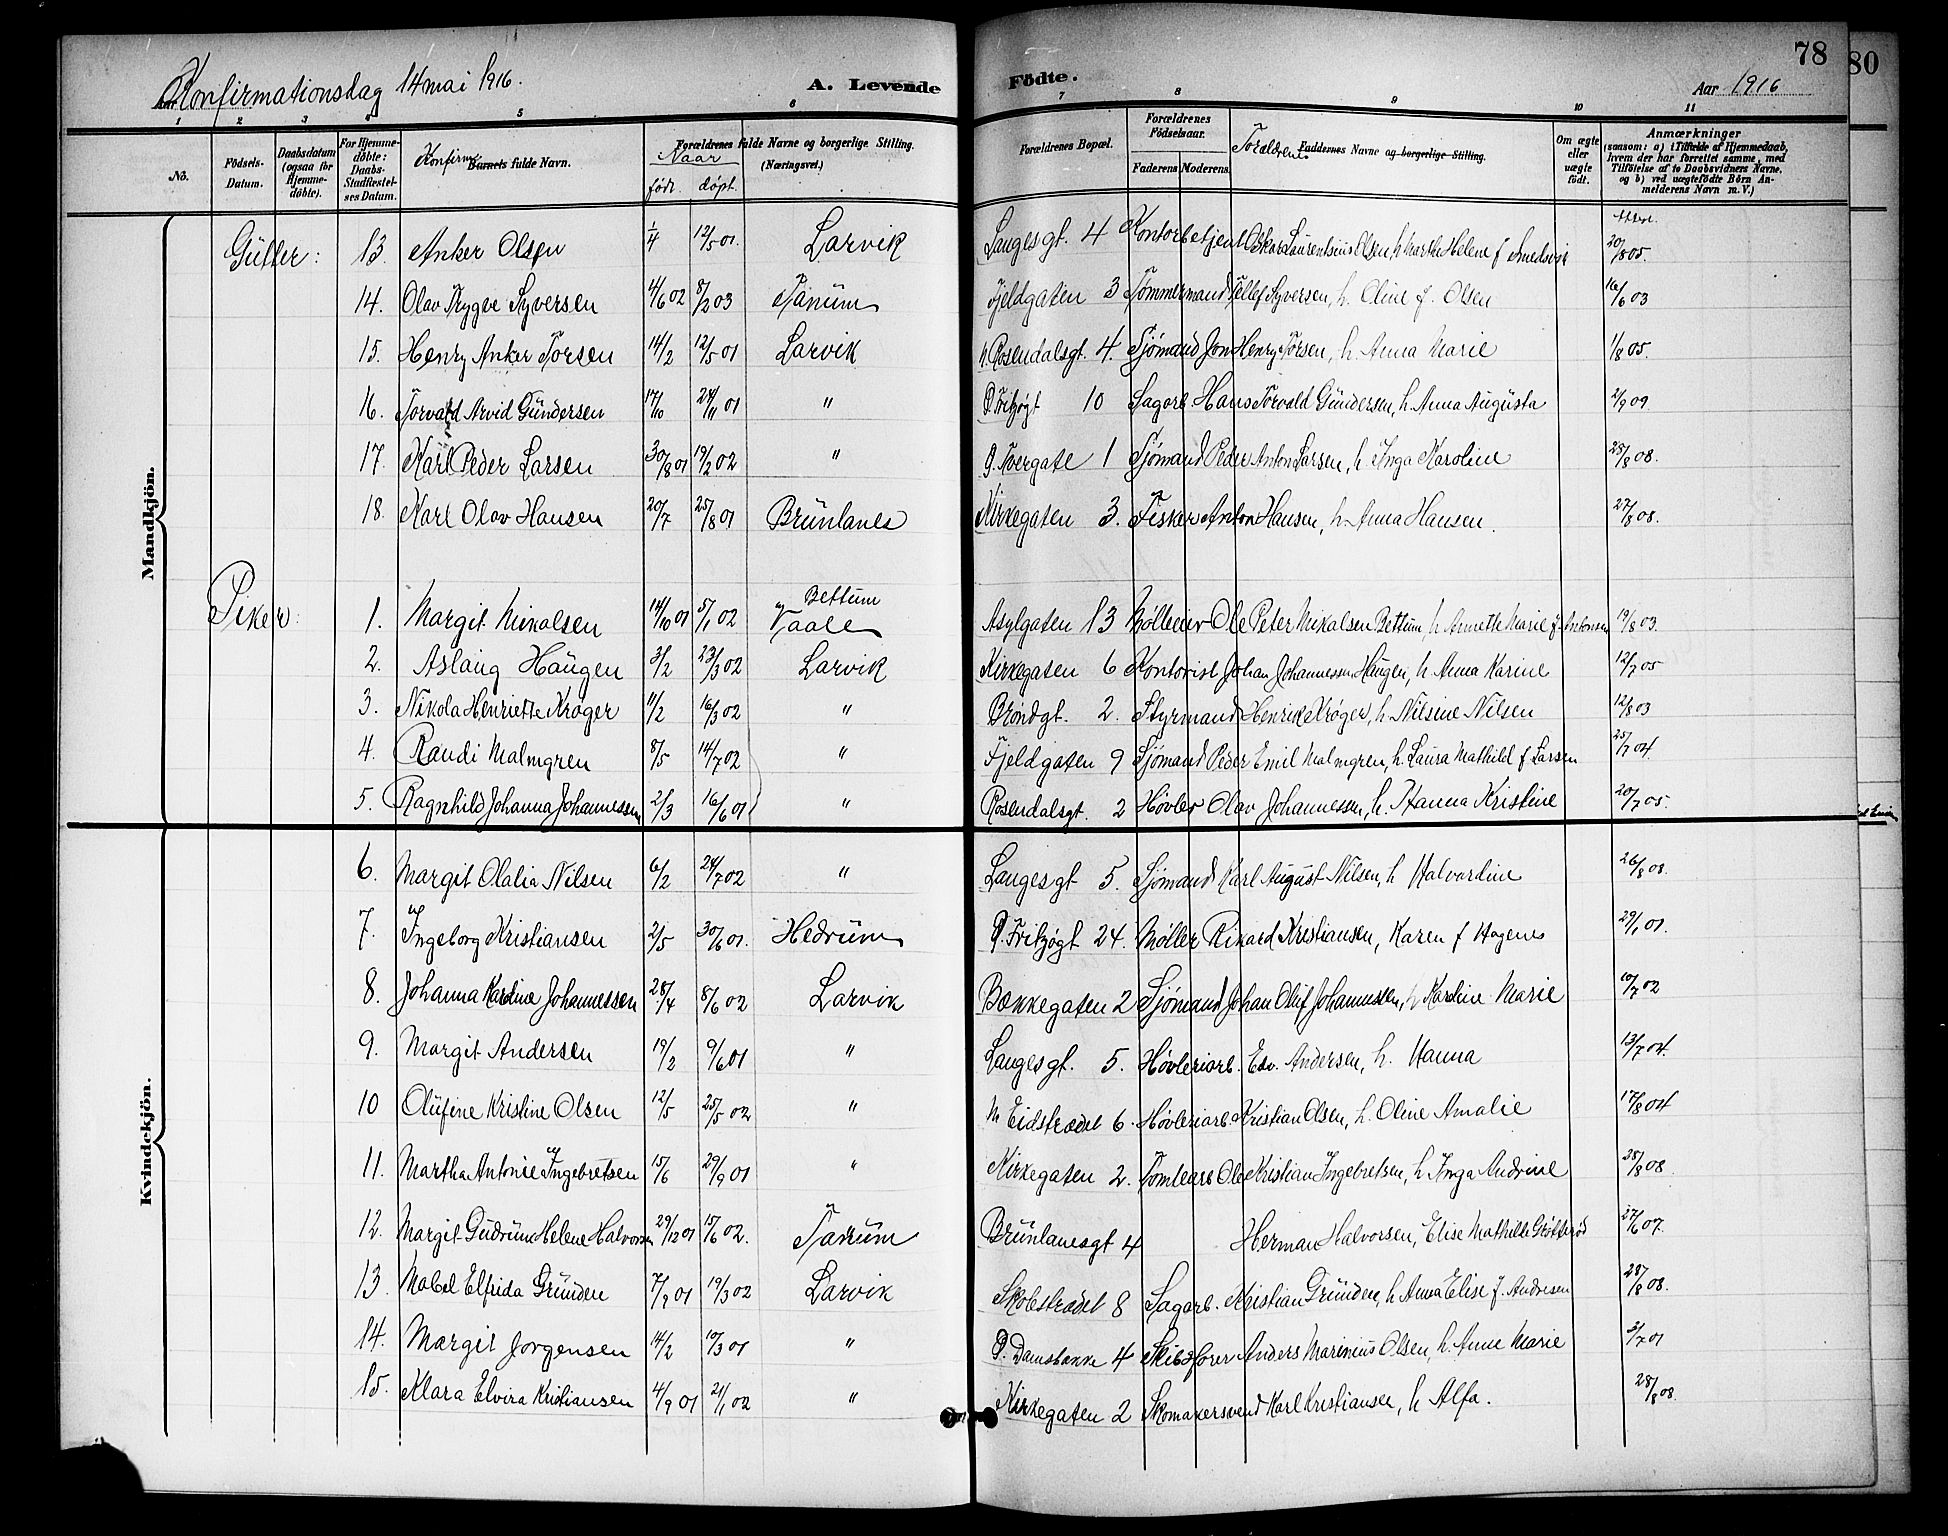 Konfirmationsdag 14 mai 1916. A. Levende Födte. Aar 1916 78 80
1 2 3 4 5 6 7 8 9 10 11
No. Födsels-Datum. Daabsdatum (ogsaa for Hjemmedöbte). For Hjemmedöbte: Daabs-Stadfæstelses Datum. Konfirm. Barnets fulde Navn. Forældrenes fulde Navne og borgerlige Stilling. (Næringsvei.) Naar født. døpt. Forældrenes Bopæl. Forældrenes Födselsaar. Faderens Moderens Forældrenes Faddernes Navne og borgerlige Stilling. Om ægte eller uægte födt. Anmærkninger (saasom: a) i Tilfælde af Hjemmedaab, hvem der har forrettet samme, med Tilföielse af to Daabsvidners Navne, og b) ved uægtefödte Börn Anmelderens Navn m. V.)
Mandkjön.
Gutter: 13. Anker Olsen 1/4 12/5 01. Larvik Langesgt. 4 Kontorbetjent Oskar Laurentsius Olsen, h Marthe Helene f 20/8 05.
14. Olav Trygve Syversen 4/6 02 8/2 03 Tanum Fjeldgaten 3 Tømmermand Tellef Syversen, h. Oline f. Olsen 16/6 03
15. Henry Anker Torsen 14/2 12/5 01 Larvik n. Rosendalsgt. 4. Sjømand Jon Henry Torsen, h. Anna Marie 1/8 05.
16. Torvald Arvid Gundersen 17/10 24/11 01 " Ø. Fritzøgt 10 Sagarb Hans Torvald Gundersen, h. Anna Augusta 2/9 09
17. Karl Peder Larsen 30/8 01 19/2 02 " Ø. Tvergate 1 Sjømand Peder Anton Larsen, h. Inga Karoline 28/8 08.
18. Karl Olav Hansen 20/7 25/8 01 Brunlanes Kirkegaten 3. Fisker Anton Hansen, h. Anna Hansen. 27/8 08.
Piker: 1. Margit Mikalsen 14/10 01 5/1 02 Bettum Vaale Asylgaten 13 Møllerier Ole Peter Mikalsen Bettum, h Annette Marie f Antonsen 19/8 03.
2. Aslaug Haugen 3/2 23/3 02 Larvik Kirkegaten 6 Kontorist Johan Johannessen Haugen, h Anna Karine 12/7 05
3. Nikola Henriette Krøger 11/2 16/3 02 " Brøndgt. 2. Styrmand Henrik Krøger, h Nilsine Nilsen 12/8 03
4. Randi Malmgren 8/5 14/7 02 " Fjeldgaten 9 Sjømand Peder Emil Malmgren, h. Laura Mathild f Larsen 25/7 04.
5. Ragnhild Johanna Johannessen 2/3 16/6 01 " Rosendalsgt. 2 Høvler Olav Johannessen, h. Hanna Kristine 20/7 05.
Kvindekjön.
6. Margit Olalia Nilsen 6/2 24/7 02 " Langesgt 5. Sjømand Karl August Nilsen, h Halvardine 26/8 08.
7. Ingeborg Kristiansen 2/5 30/6 01. Hedrum Ø. Fritzøgt 24. Møller Rikard Kristiansen, Karen f Hagenes 29/1 01.
8. Johanna Karoline Johannessen 28/4 8/6 02 Larvik Bækkegaten 2 Sjømand Johan Oluf Johannessen, h Karoline Marie 10/7 02
9. Margit Andersen 19/2 9/6 01 " Langesgt. 5. Høvleriarb. Edv. Andersen, h. Hanna 13/7 04.
10 Olufine Kristine Olsen 12/5 25/5 02 " M Eidstrædet 6. Høvleriarb. Kristian Olsen, h. Oline Amalie 17/8 04
11. Martha Antonie Ingebretsen 15/6 29/9 01 " Kirkegaten 2. Tomtearb Ole Kristian Ingebretsen, h Inga Andrine 28/8 08.
12. Margit Gudrun Helene Halvorsen 29/12 01 15/6 02. Tanum Brunlanesgt 4 Herman Halvorsen, Elise Mathilde 27/6 07.
13. Mabel Elfrida Grunden 7/9 01 19/3 02 Larvik Skolestrædet 8 Sagarb. Kristian Grunden, h Anna Elise f. Andresen 28/8 08.
14. Margit Jørgensen 14/2 10/3 01 " Ø. Damsbakke 4 Skibsfører Anders Marinius Olsen, h. Anne Marie 3/7 01
15. Klara Elvira Kristiansen 4/9 01 21/1 02 " Kirkegaten 2 Skomakersvend Karl Kristiansen, h Alfa. 28/8 08.